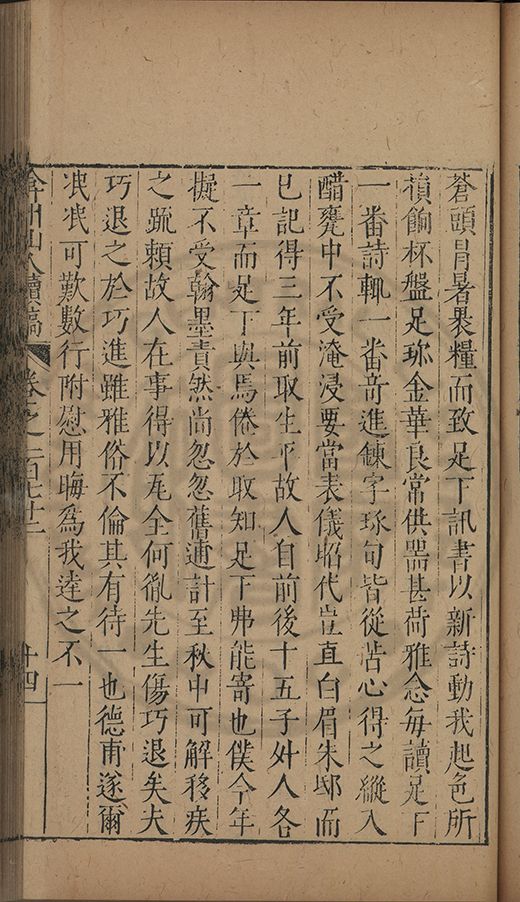 蒼頭冐暑褁糧而致足下訊書以新詩動我起色所
損餉杯盤足珎金華良常供噐甚荷雅念毎讀足下
一番詩輒一番竒進鍊字琢句皆從苦心得之縱入
醋甕中不受淹浸要當表儀昭代豈直白眉朱邸而
已記得三年前取生平故人自前後十五子外人各
一章而足下與馬倦於取知足下弗能寄也僕今年
擬不受翰墨責然尚忽忽舊逋計至秋中可解移疾
之䟽頼故人在事得以瓦全何胤先生傷巧退矣夫
巧退之於巧進雖雅俗不倫其有待一也德甫遂爾
泯泯可歎數行附慰用晦為我逹之不一
弇州山人續稿 卷之一百七十二 十四